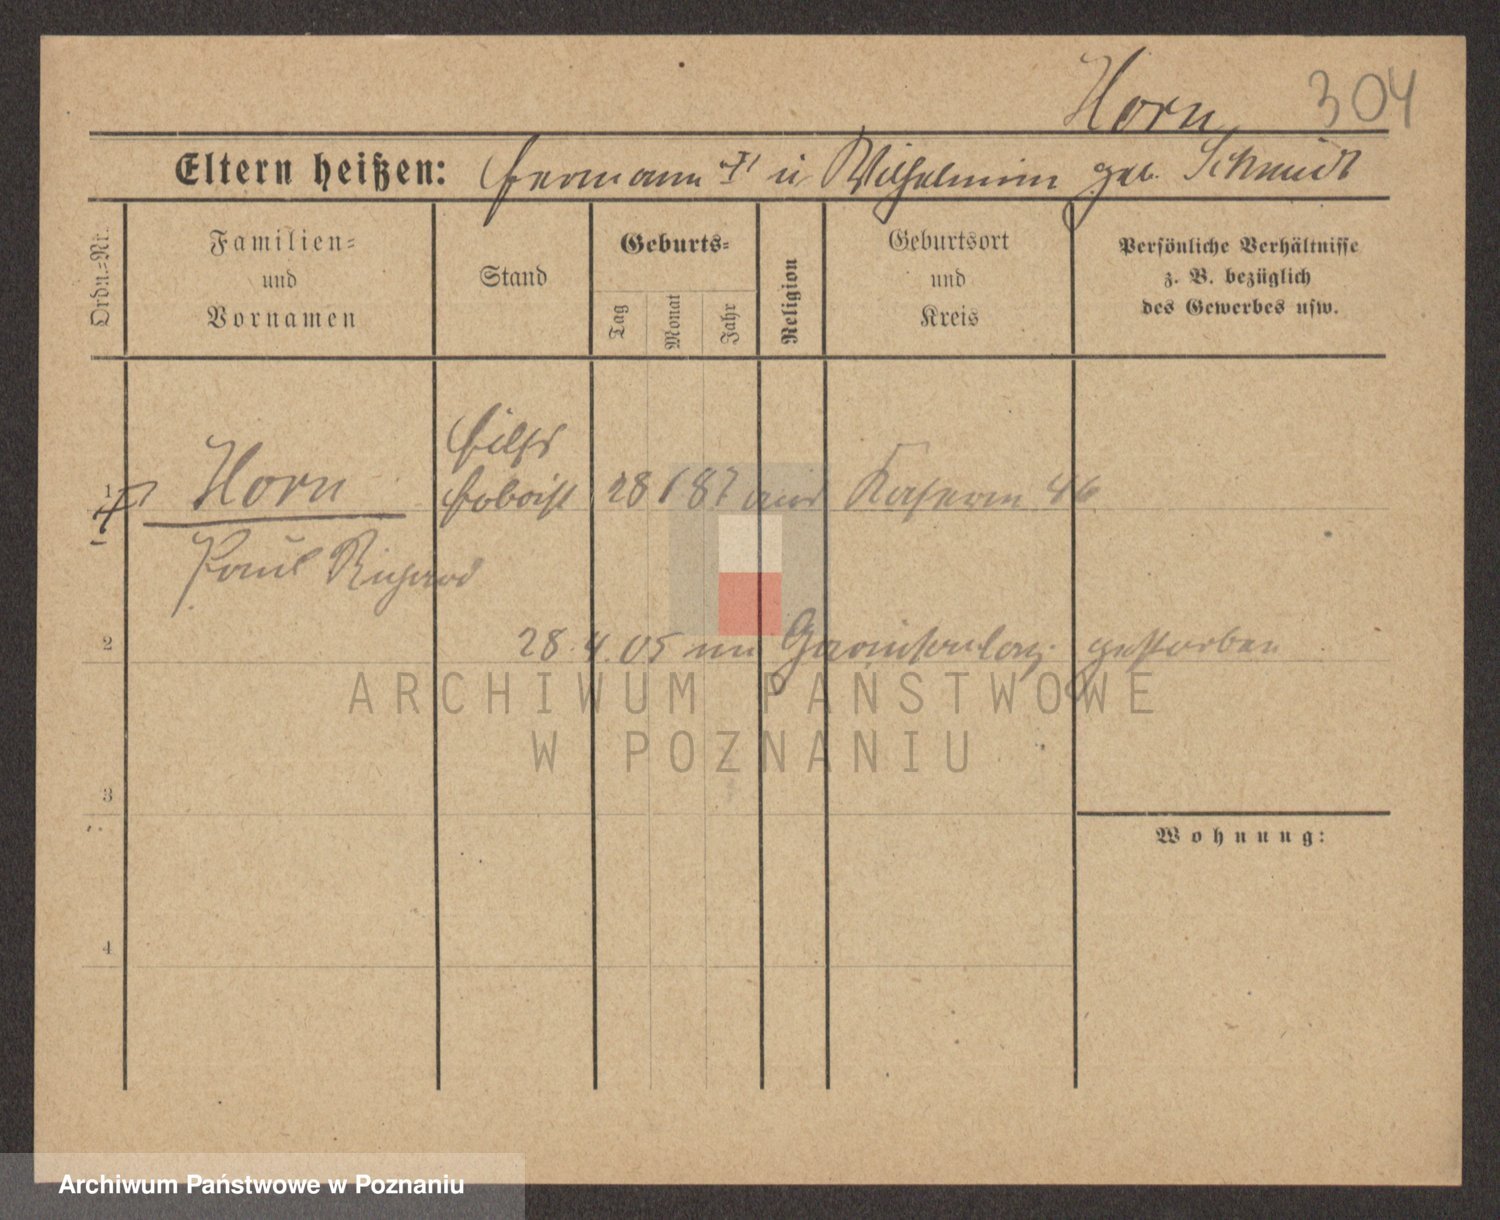 Horn 304
Eltern heißen: Hermann u Wilhelmine geb. Schmidt
Ordn.-Nr.
Familien-
und
Vornamen
Stand
Geburts-
Tag
Monat
Jahr
Religion
Geburtsort
und
Kreis
Persönliche Verhältnisse
z. B. bezüglich
des Gewerbes usw.
Hilfs
1 Horn Hoboist 28 6 87 Kaserne 46
Paul Richard
2 28.4.05 im Garnisonlaz. gestorben
ARCHIWUM PAŃSTWOWE
W POZNANIU
3
Wohnung:
4
Archiwum Państwowe w Poznaniu